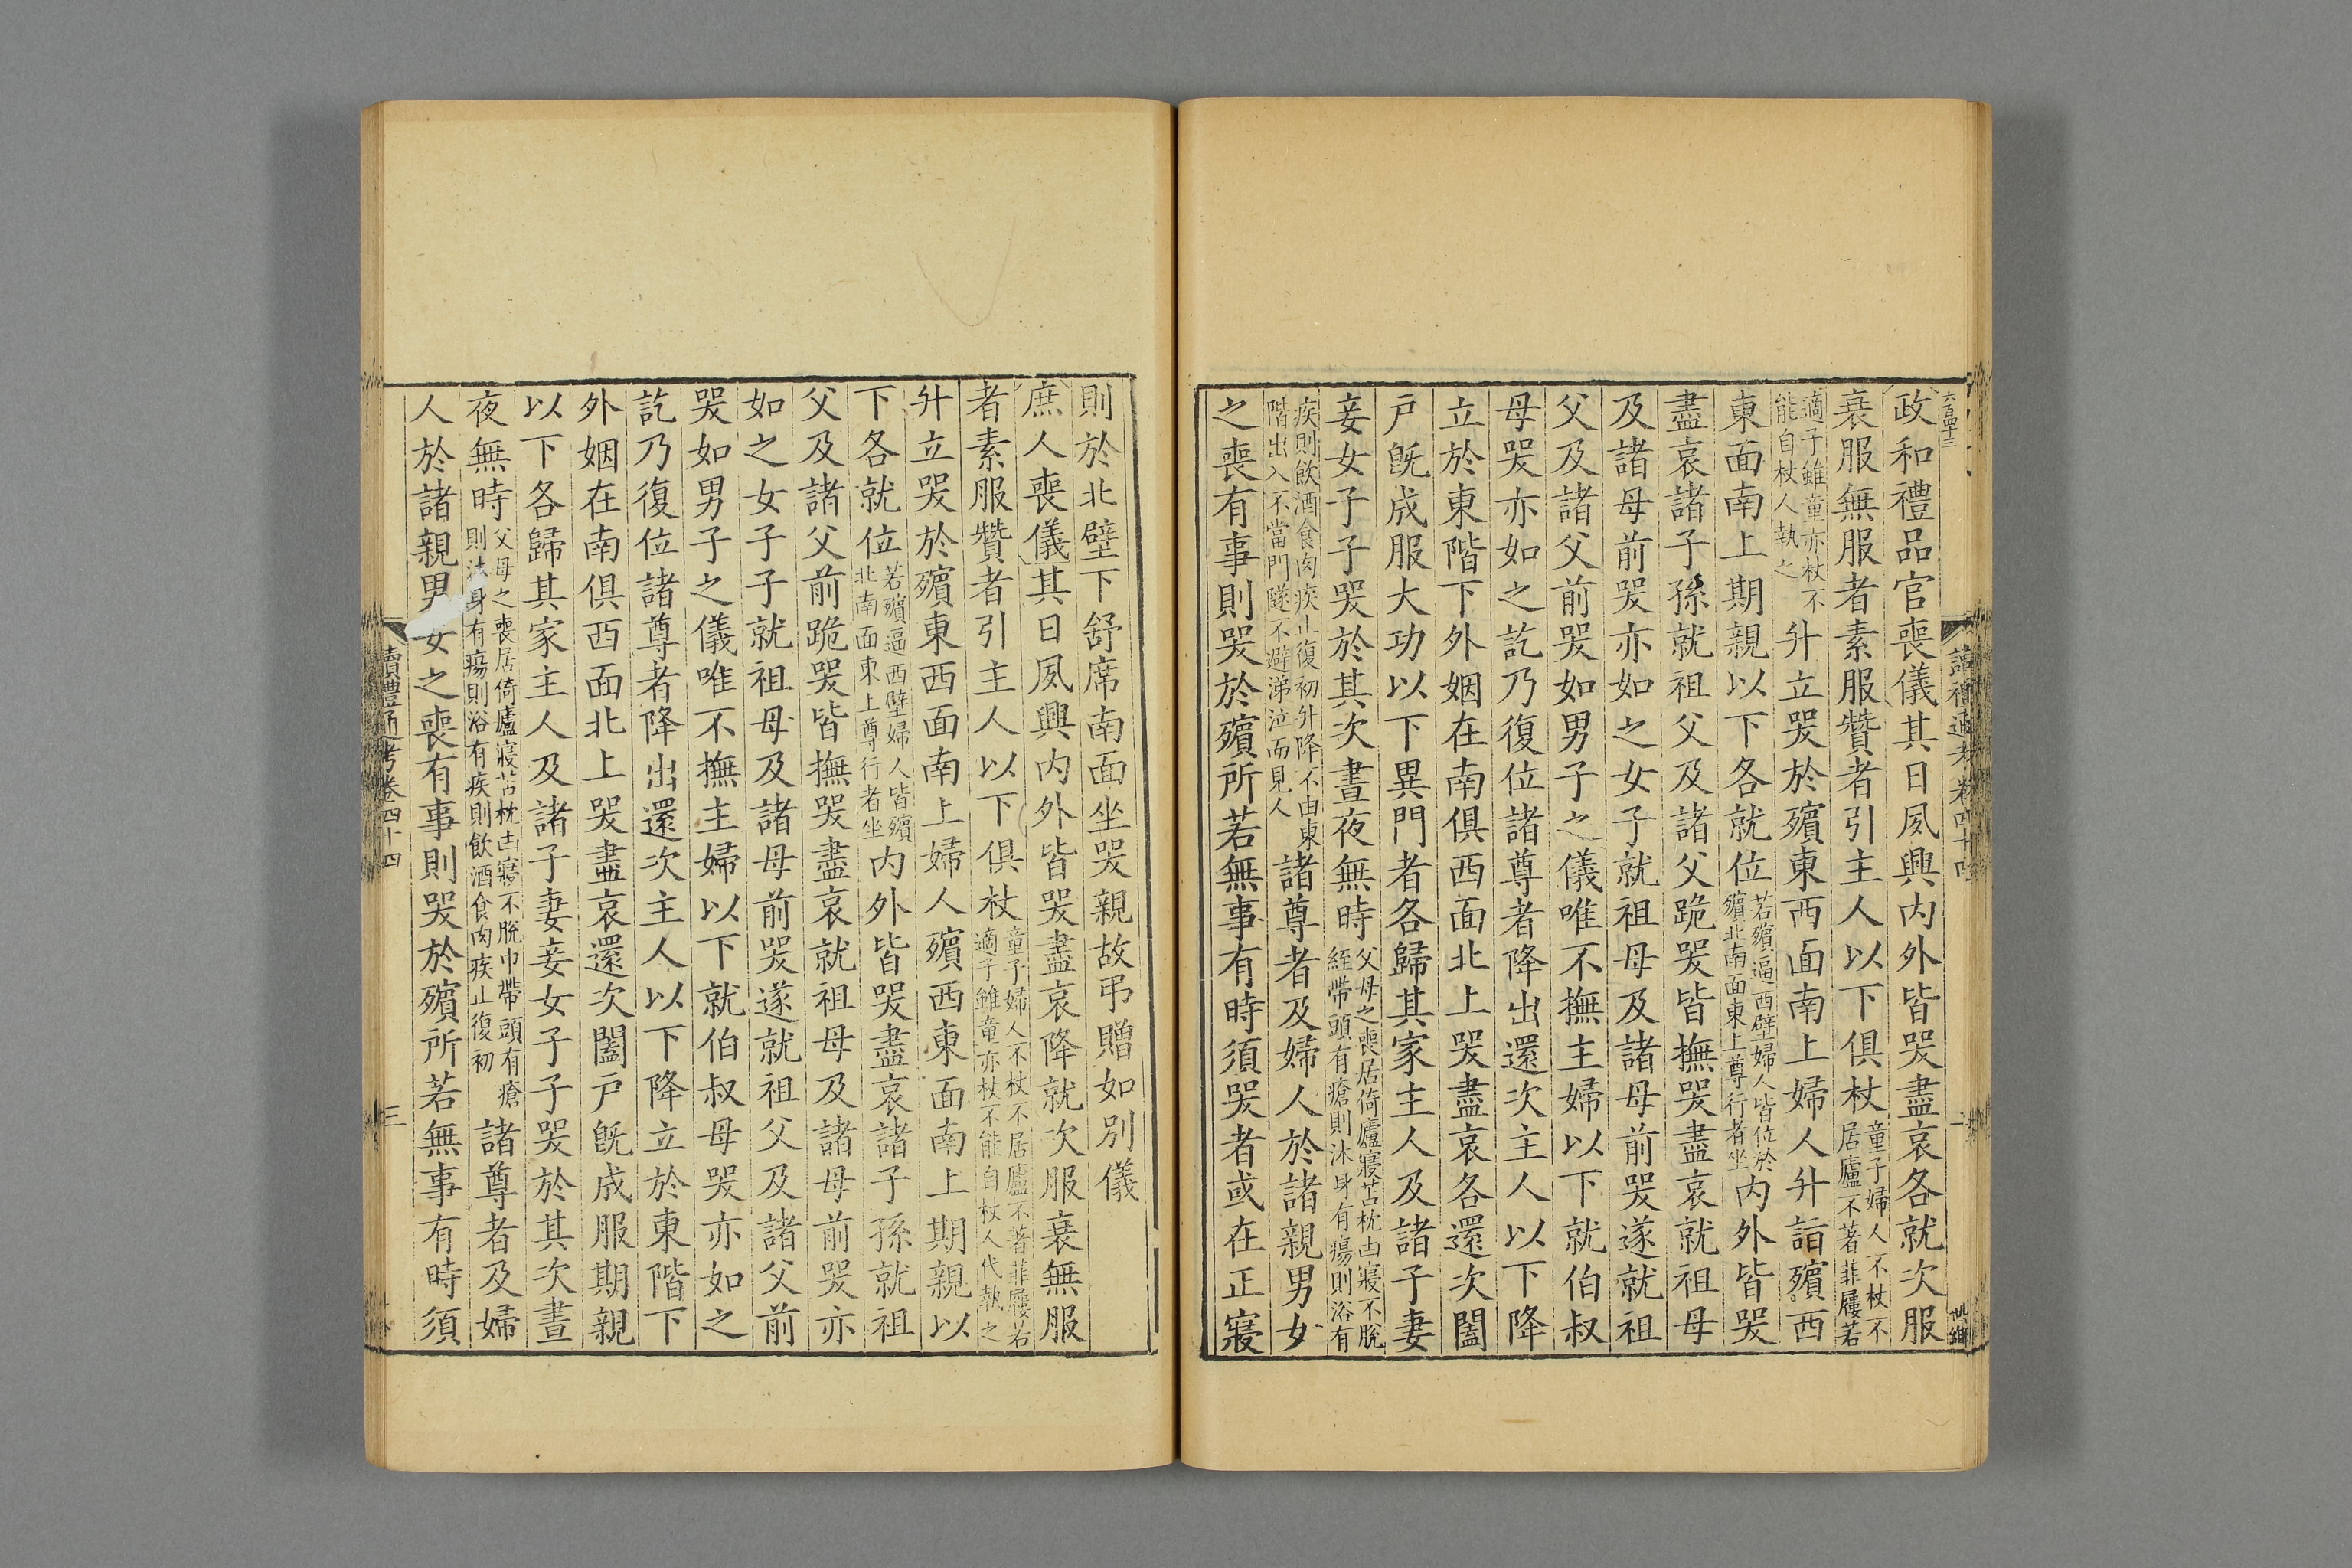 六百四十三
政和禮品官喪儀其日夙興內外皆哭盡哀各就次服
衰服無服者素服贊者引主人以下俱杖童子婦人不杖不居廬不著菲屨若
適子雖童亦杖不能自杖人執之升立哭於殯東西面南上婦人升詣殯西
東面南上期親以下各就位若殯逼西壁婦人皆位於殯北南面東上尊行者坐內外皆哭
盡哀諸子孫就祖父及諸父跪哭皆撫哭盡哀就祖母
及諸母前哭亦如之女子就祖母及諸母前哭遂就祖
父及諸父前哭如男子之儀唯不撫主婦以下就伯叔
母哭亦如之訖乃復位諸尊者降出還次主人以下降
立於東階下外姻在南俱西面北上哭盡哀各還次闔
戶旣成服大功以下異門者各歸其家主人及諸子妻
妾女子子哭於其次晝夜無時父母之喪居倚廬寢苫枕凷寢不脫絰帶頭有瘡則沐身有瘍則浴有
疾則飲酒食肉疾止復初升降不由東階出入不當門隧不避涕泣而見人諸尊者及婦人於諸親男女
之喪有事則哭於殯所若無事有時須哭者或在正寢
讀禮通考卷四十四
則於北壁下舒席南面坐哭親故弔贈如別儀
庶人喪儀其日夙興內外皆哭盡哀降就次服衰無服
者素服贊者引主人以下俱杖童子婦人不杖不居廬不著菲屨若適子雖童亦杖不能自杖人代執之
升立哭於殯東西面南上婦人殯西東面南上期親以
下各就位若殯逼西壁婦人皆殯北南面東上尊行者坐內外皆哭盡哀諸子孫就祖
父及諸父前跪哭皆撫哭盡哀就祖母及諸母前哭亦
如之女子子就祖母及諸母前哭遂就祖父及諸父前
哭如男子之儀唯不撫主婦以下就伯叔母哭亦如之
訖乃復位諸尊者降出還次主人以下降立於東階下
外姻在南俱西面北上哭盡哀還次闔戶旣成服期親
以下各歸其家主人及諸子妻妾女子子哭於其次晝
夜無時父母之喪居倚廬寢苫枕凷寢不脫巾帶頭有瘡則沐身有瘍則浴有疾則飲酒食肉疾止復初諸尊者及婦
人於諸親男女之喪有事則哭於殯所若無事有時須
讀禮通考卷四十四
三